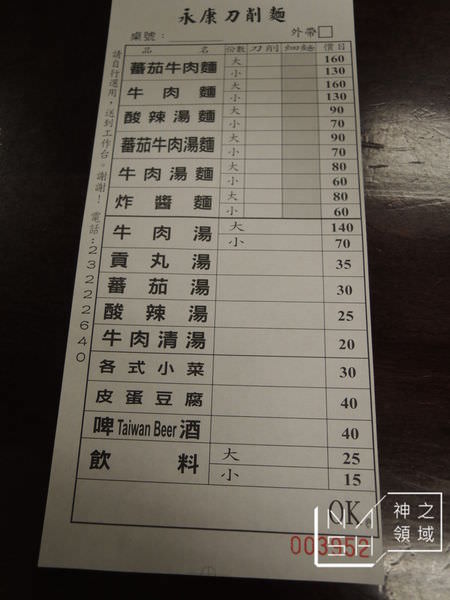 永康刀削麵
桌號： 外帶□
品名 份數 刀削 細麵 價目
蕃茄牛肉麵 大 160
小 130
牛肉麵 大 160
小 130
酸辣湯麵 大 90
小 70
蕃茄牛肉湯麵 大 90
小 70
牛肉湯麵 大 80
小 60
炸醬麵 大 80
小 60
牛肉湯 大 140
小 70
貢丸湯 35
蕃茄湯 30
酸辣湯 25
牛肉清湯 20
各式小菜 30
皮蛋豆腐 40
啤Taiwan Beer酒 40
飲料 大 25
小 15
請自行選用，送到工作台。謝謝！電話:23222640
OK
003952
神之領域